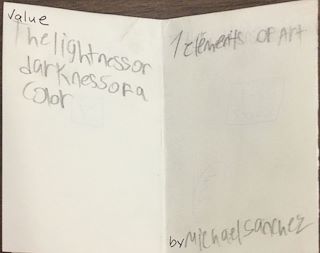 value
The lightness or
darkness of a
color
7 elements of Art
by Michael Sanchez